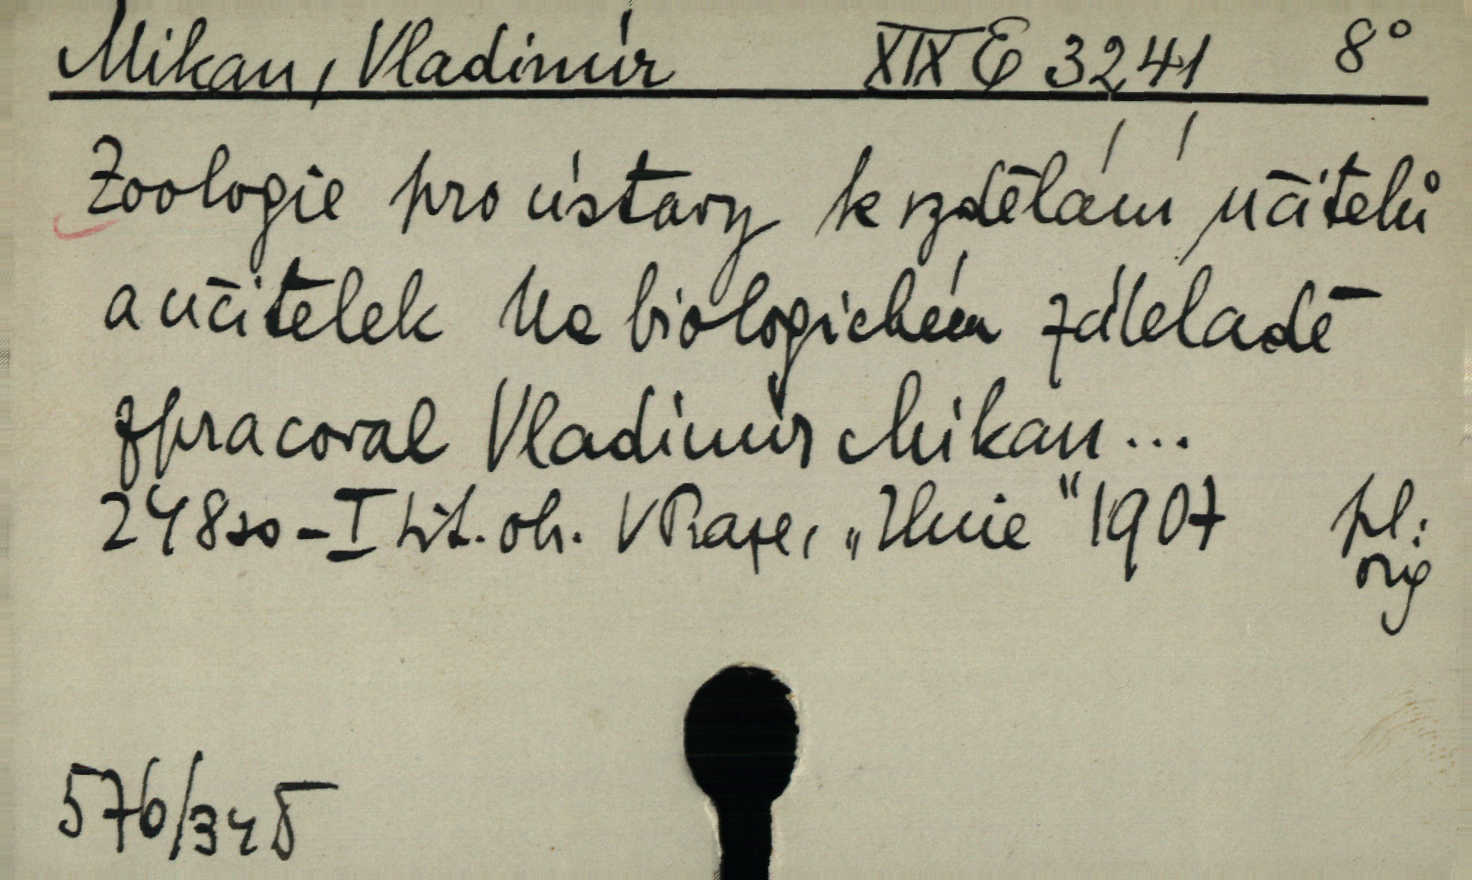 Mikan, Vladimír XIX E 3241 8°
Zoologie pro ústavy k vzdělání učitelů
a učitelek Na biologickém základě
zpracoval Vladimír Mikan...
248 so - I Lit. ob. V Praze, „Unie" 1907 pl.
orig
576/345